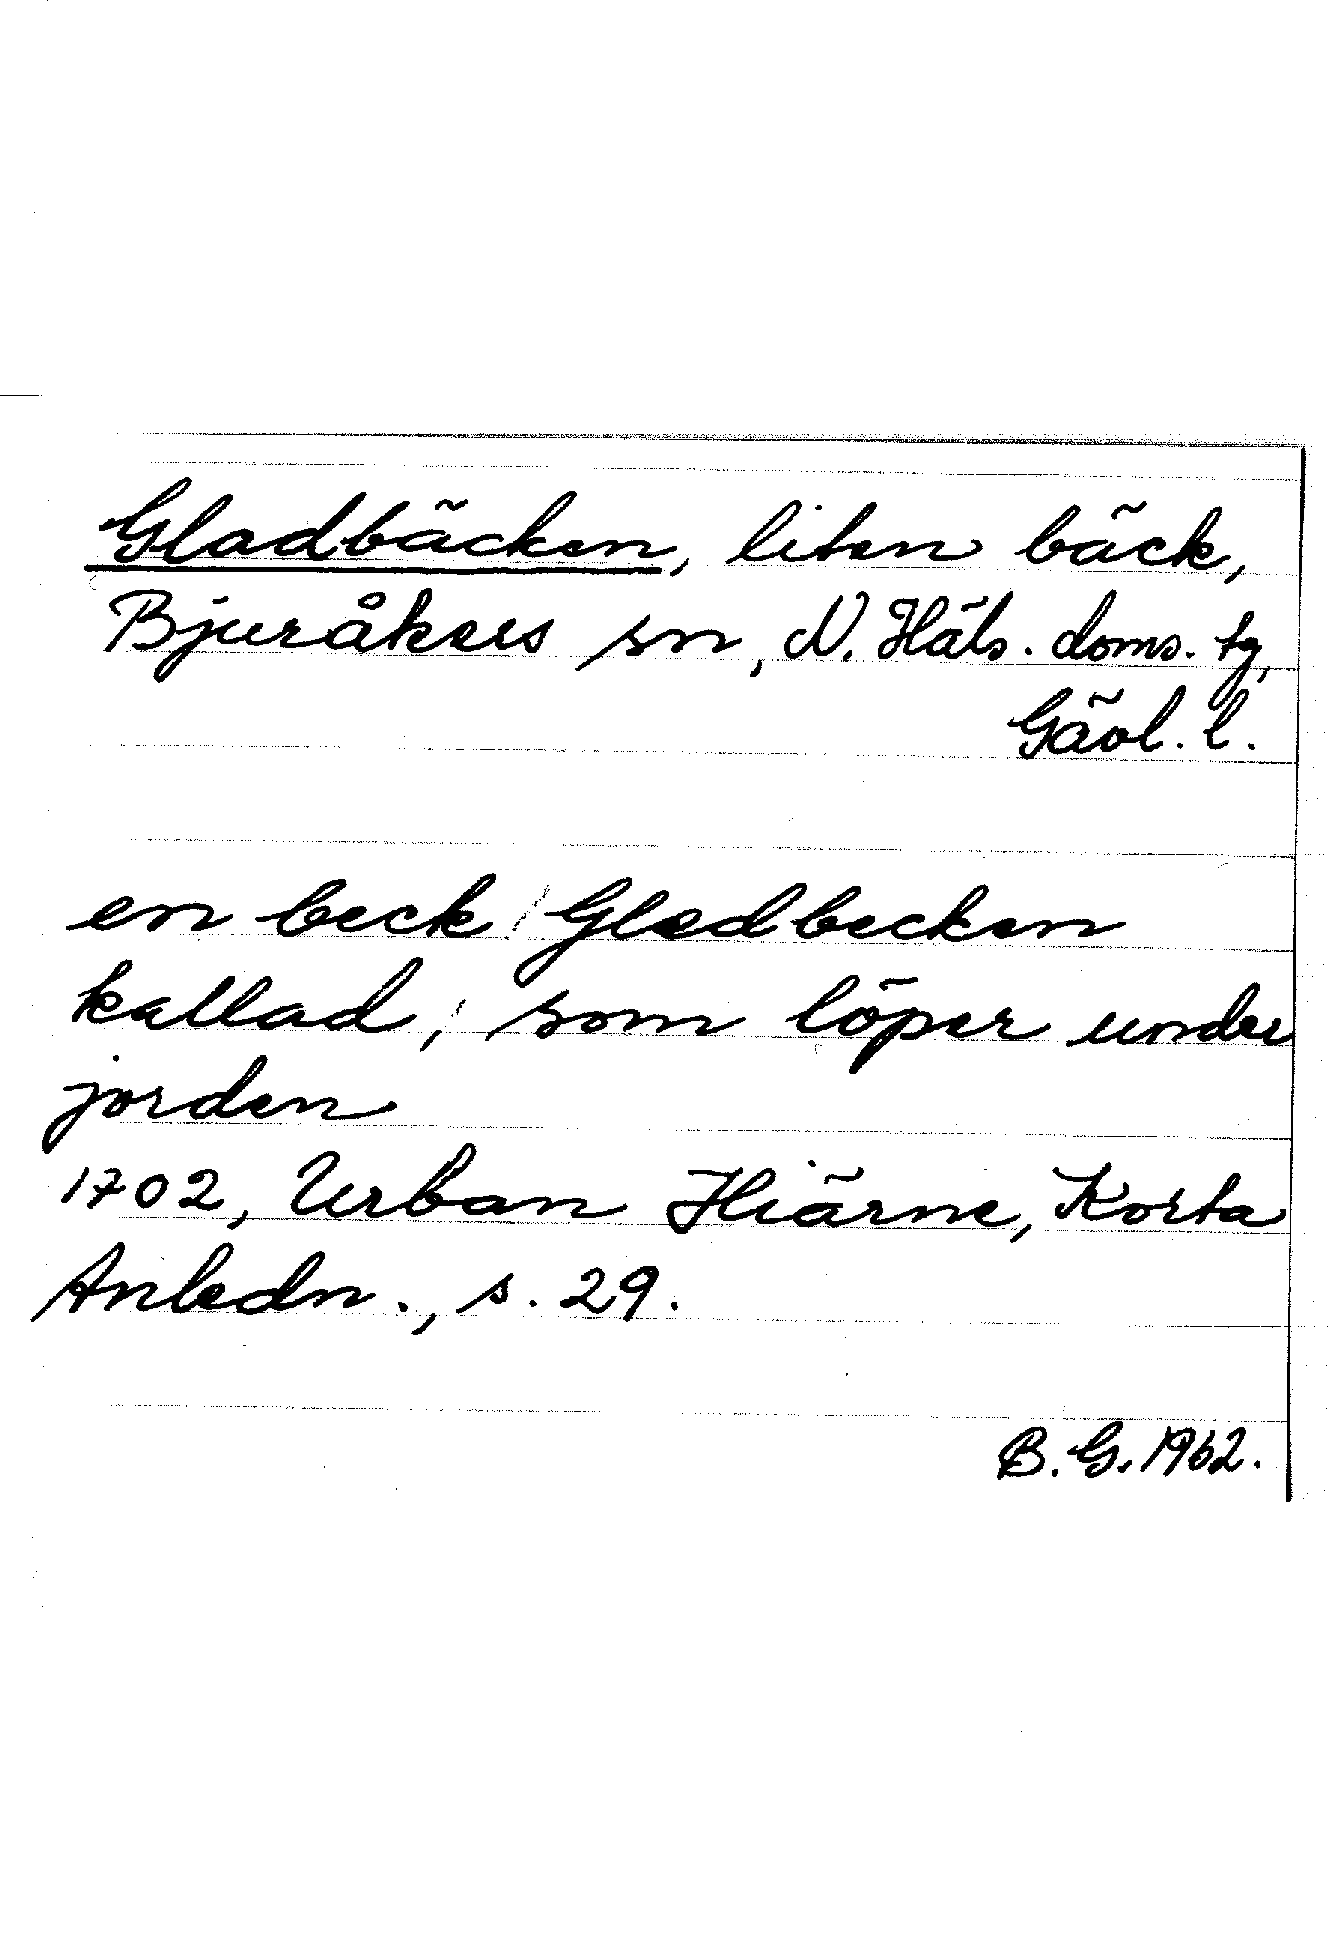 Gladbäcken, liten bäck,
Bjuråkers sn, N. Häls. doms. tg,
Gävl. l.
en beck / Gladbecken
kallad, / som löper under
jorden
1702, Urban Hiärne, Korta
Anledn., s. 29.
B. G. 1962.